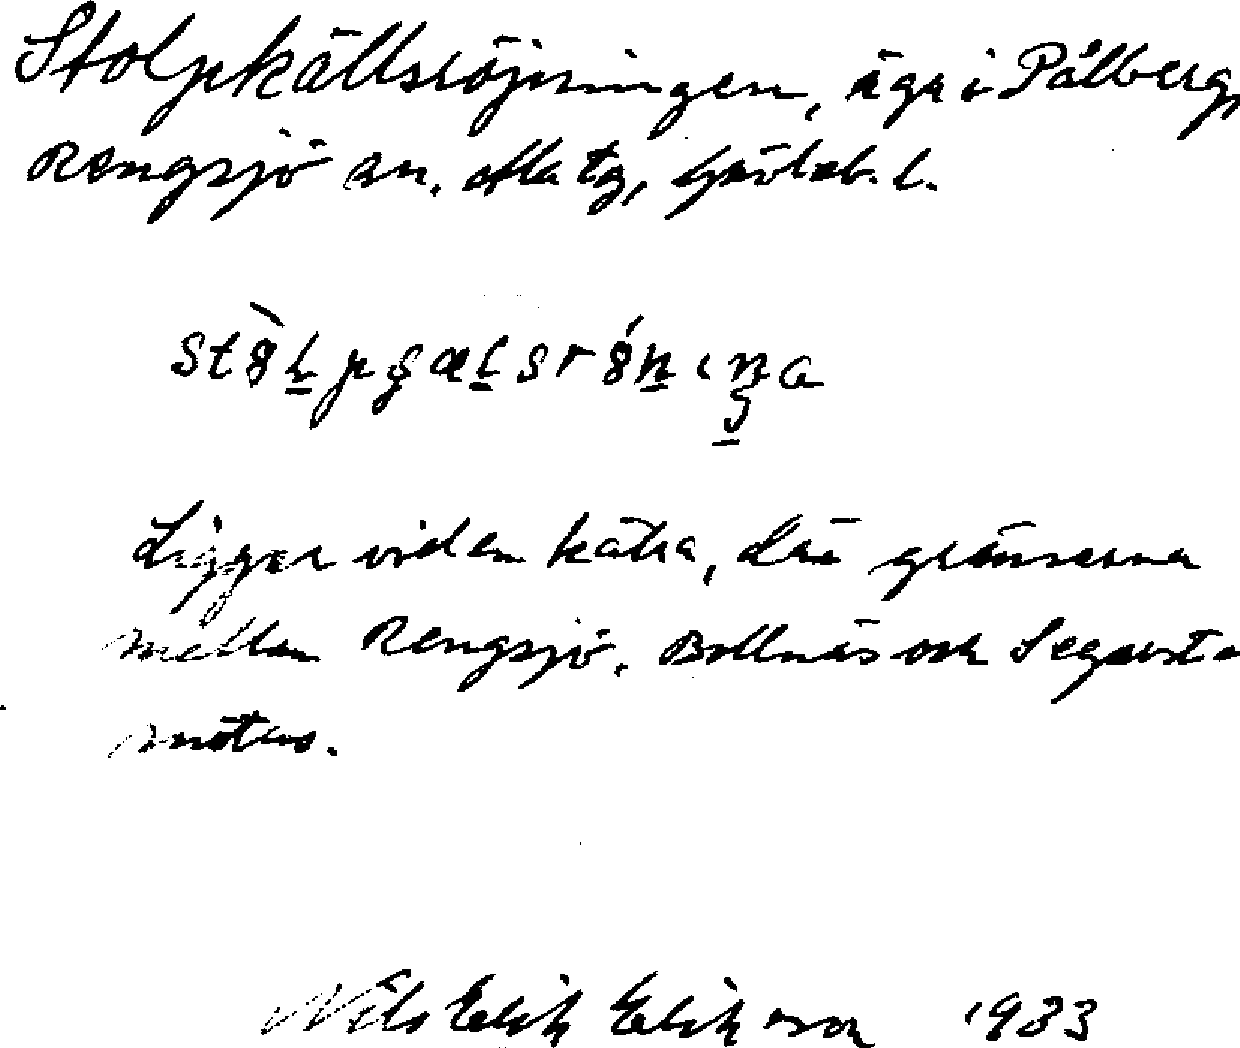 Stolpkällsröjningen, äga i Pålberg,
Rengsjö sn. Ala tg, Gävleb. l.
Ligger vid en kälra, där gränserna
mellan Rengsjö, Bollnäs och Segersta
mötas.
Nils Erik Eriksson 1933